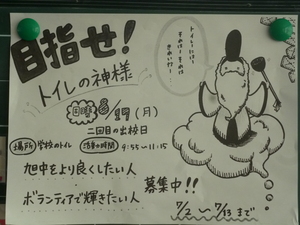 目指せ!
トイレの神様
トイレには
それはそれは
きれいな…
日時 8/19 (月)
二回目の出校日
場所 学校のトイレ 活動の時間 9:55〜11:15
旭中をより良くしたい人
ボランティアで輝きたい人
募集中!!
7/2 〜 7/13 まで